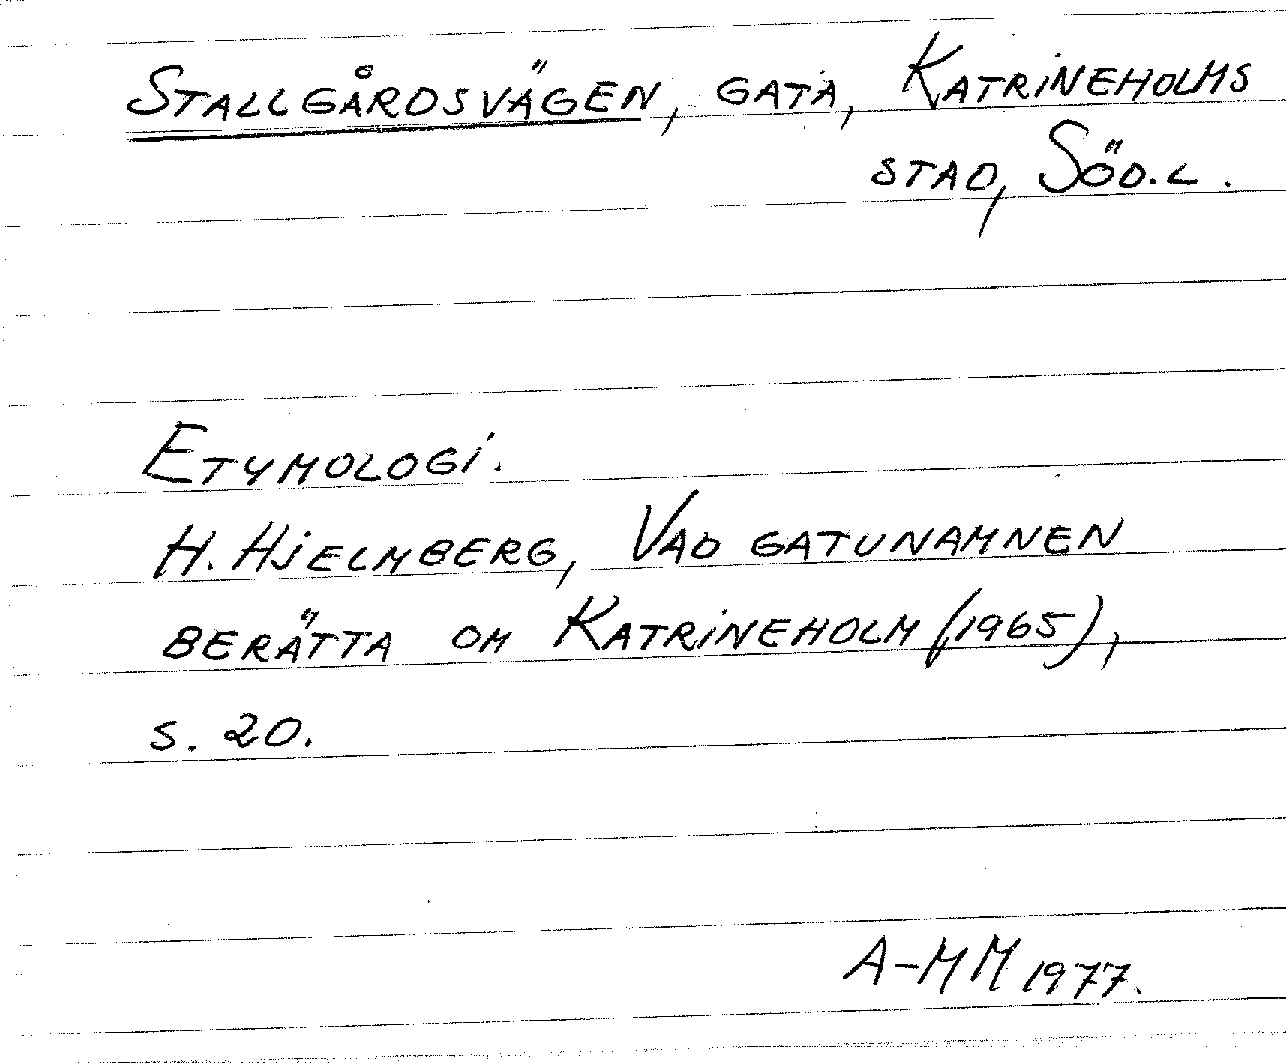 Stallgårdsvägen, gata, Katrineholms
stad, Söd.l.
Etymologi.
H. Hjelmberg, Vad gatunamnen
berätta om Katrineholm (1965),
s. 20.
A-MM 1977.